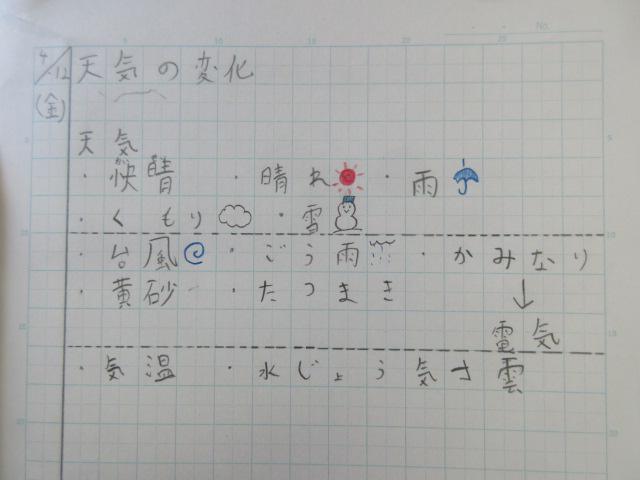 4/12 天気の変化
(金)
天気
・快晴 ・晴れ ・雨
・くもり ・雪
・台風 ・ごう雨 ・かみなり
・黄砂 ・たつまき ↓
電気
・気温 ・水じょう気さ 雲